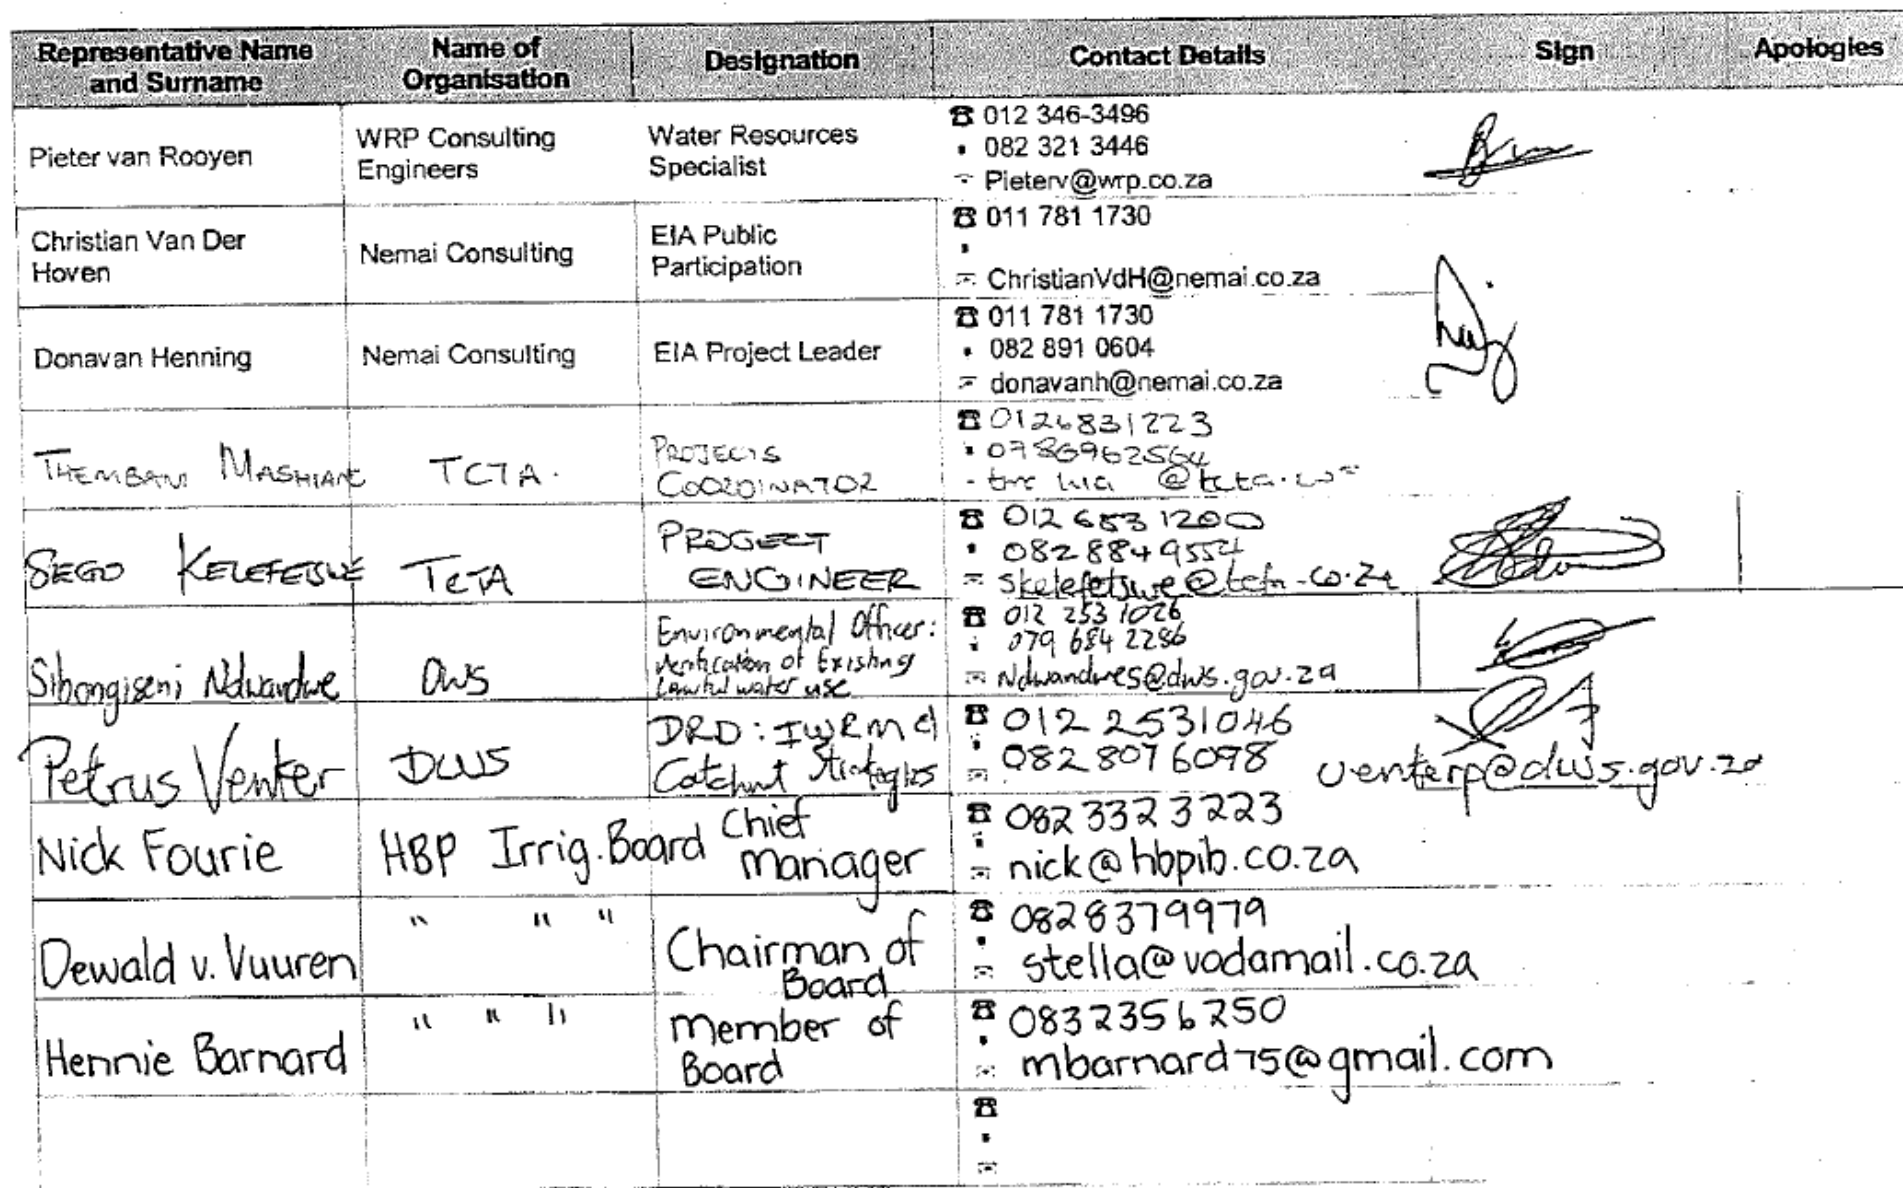 Representative Name and Surname Name of Organisation Designation Contact Details Sign Apologies
Pieter van Rooyen WRP Consulting Engineers Water Resources Specialist
012 346-3496
082 321 3446
Pieterv@wrp.co.za
Christian Van Der Hoven Nemai Consulting EIA Public Participation
011 781 1730
ChristianVdH@nemai.co.za
Donavan Henning Nemai Consulting EIA Project Leader
011 781 1730
082 891 0604
donavanh@nemai.co.za
THEMBANI MASHIANE TCTA. PROJECTS COORDINATOR
0126831223
0786962564
@tcta.co
SEGO KELEFETSWE TCTA PROJECT ENGINEER
012 683 1200
082 884 9554
skelefetswe@tcta.co.za
Sibongiseni Ndwandwe DWS Environmental Officer: Verification of Existing Lawful water use
012 253 1026
079 684 2286
Ndwandwes@dws.gov.za
Petrus Venter DWS DRD: IWRM & Catchmt Strategies
012 2531046
082 8076098 venterp@dws.gov.za
Nick Fourie HBP Irrig. Board Chief manager
082 332 3223
nick@hbpib.co.za
Dewald v. Vuuren " " " Chairman of Board
0828379979
stella@vodamail.co.za
Hennie Barnard " " " member of Board
0832356250
mbarnard75@gmail.com